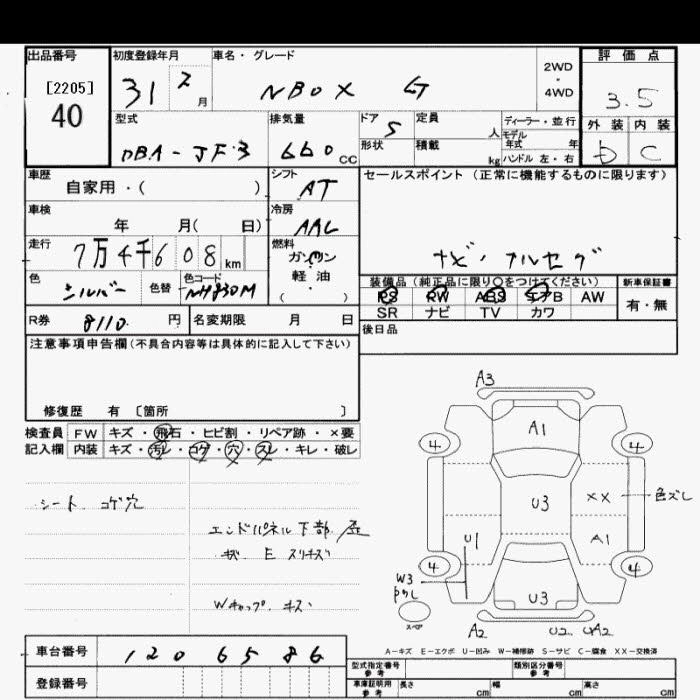 出品番号 初度登録年月 車名・グレード 評価点
[2205] 31 2月 NBOX G 2WD・4WD 3.5
40
型式 排気量 ドア 5 定員 人 ディーラー・並行 外装 内装
DBA-JF3 660 CC 形状 積載 kg モデル年式 年 ハンドル 左・右 D C
車歴 シフト セールスポイント(正常に機能するものに限ります)
自家用・( ) AT
車検 冷房
年 月( 日) AAC
走行 燃料
7万4千608 km ガソリン ナビ・フルセグ
色 色替 色コード 軽油 装備品(純正品に限り○をつけてください) 新車保証書
シルバー NH830M ( ) PS PW ABS エアB AW 有・無
SR ナビ TV カワ
R券 8110 円 名変期限 月 日 後日品
注意事項申告欄(不具合内容等は具体的に記入して下さい)
修復歴 有 〔箇所 〕
検査員 FW キズ・飛石・ヒビ割・リペア跡・×要
記入欄 内装 キズ・汚レ・コゲ・穴・スレ・キレ・破レ
シート コゲ穴
エンドパネル下部 歪
キズ E スリキズ
Wキャップ キズ
A3
A1
4 4
U3 XX 色ズレ
U1 A1
W3
4 4
U3
スペア
A2 U2 A2
A-キズ E-エクボ U-凹み W-補修跡 S-サビ C-腐食 XX-交換済
車台番号 1206586 型式指定番号 参考 類別区分番号 参考
登録番号 車庫証明用 参考 長さ cm 幅 cm 高さ cm